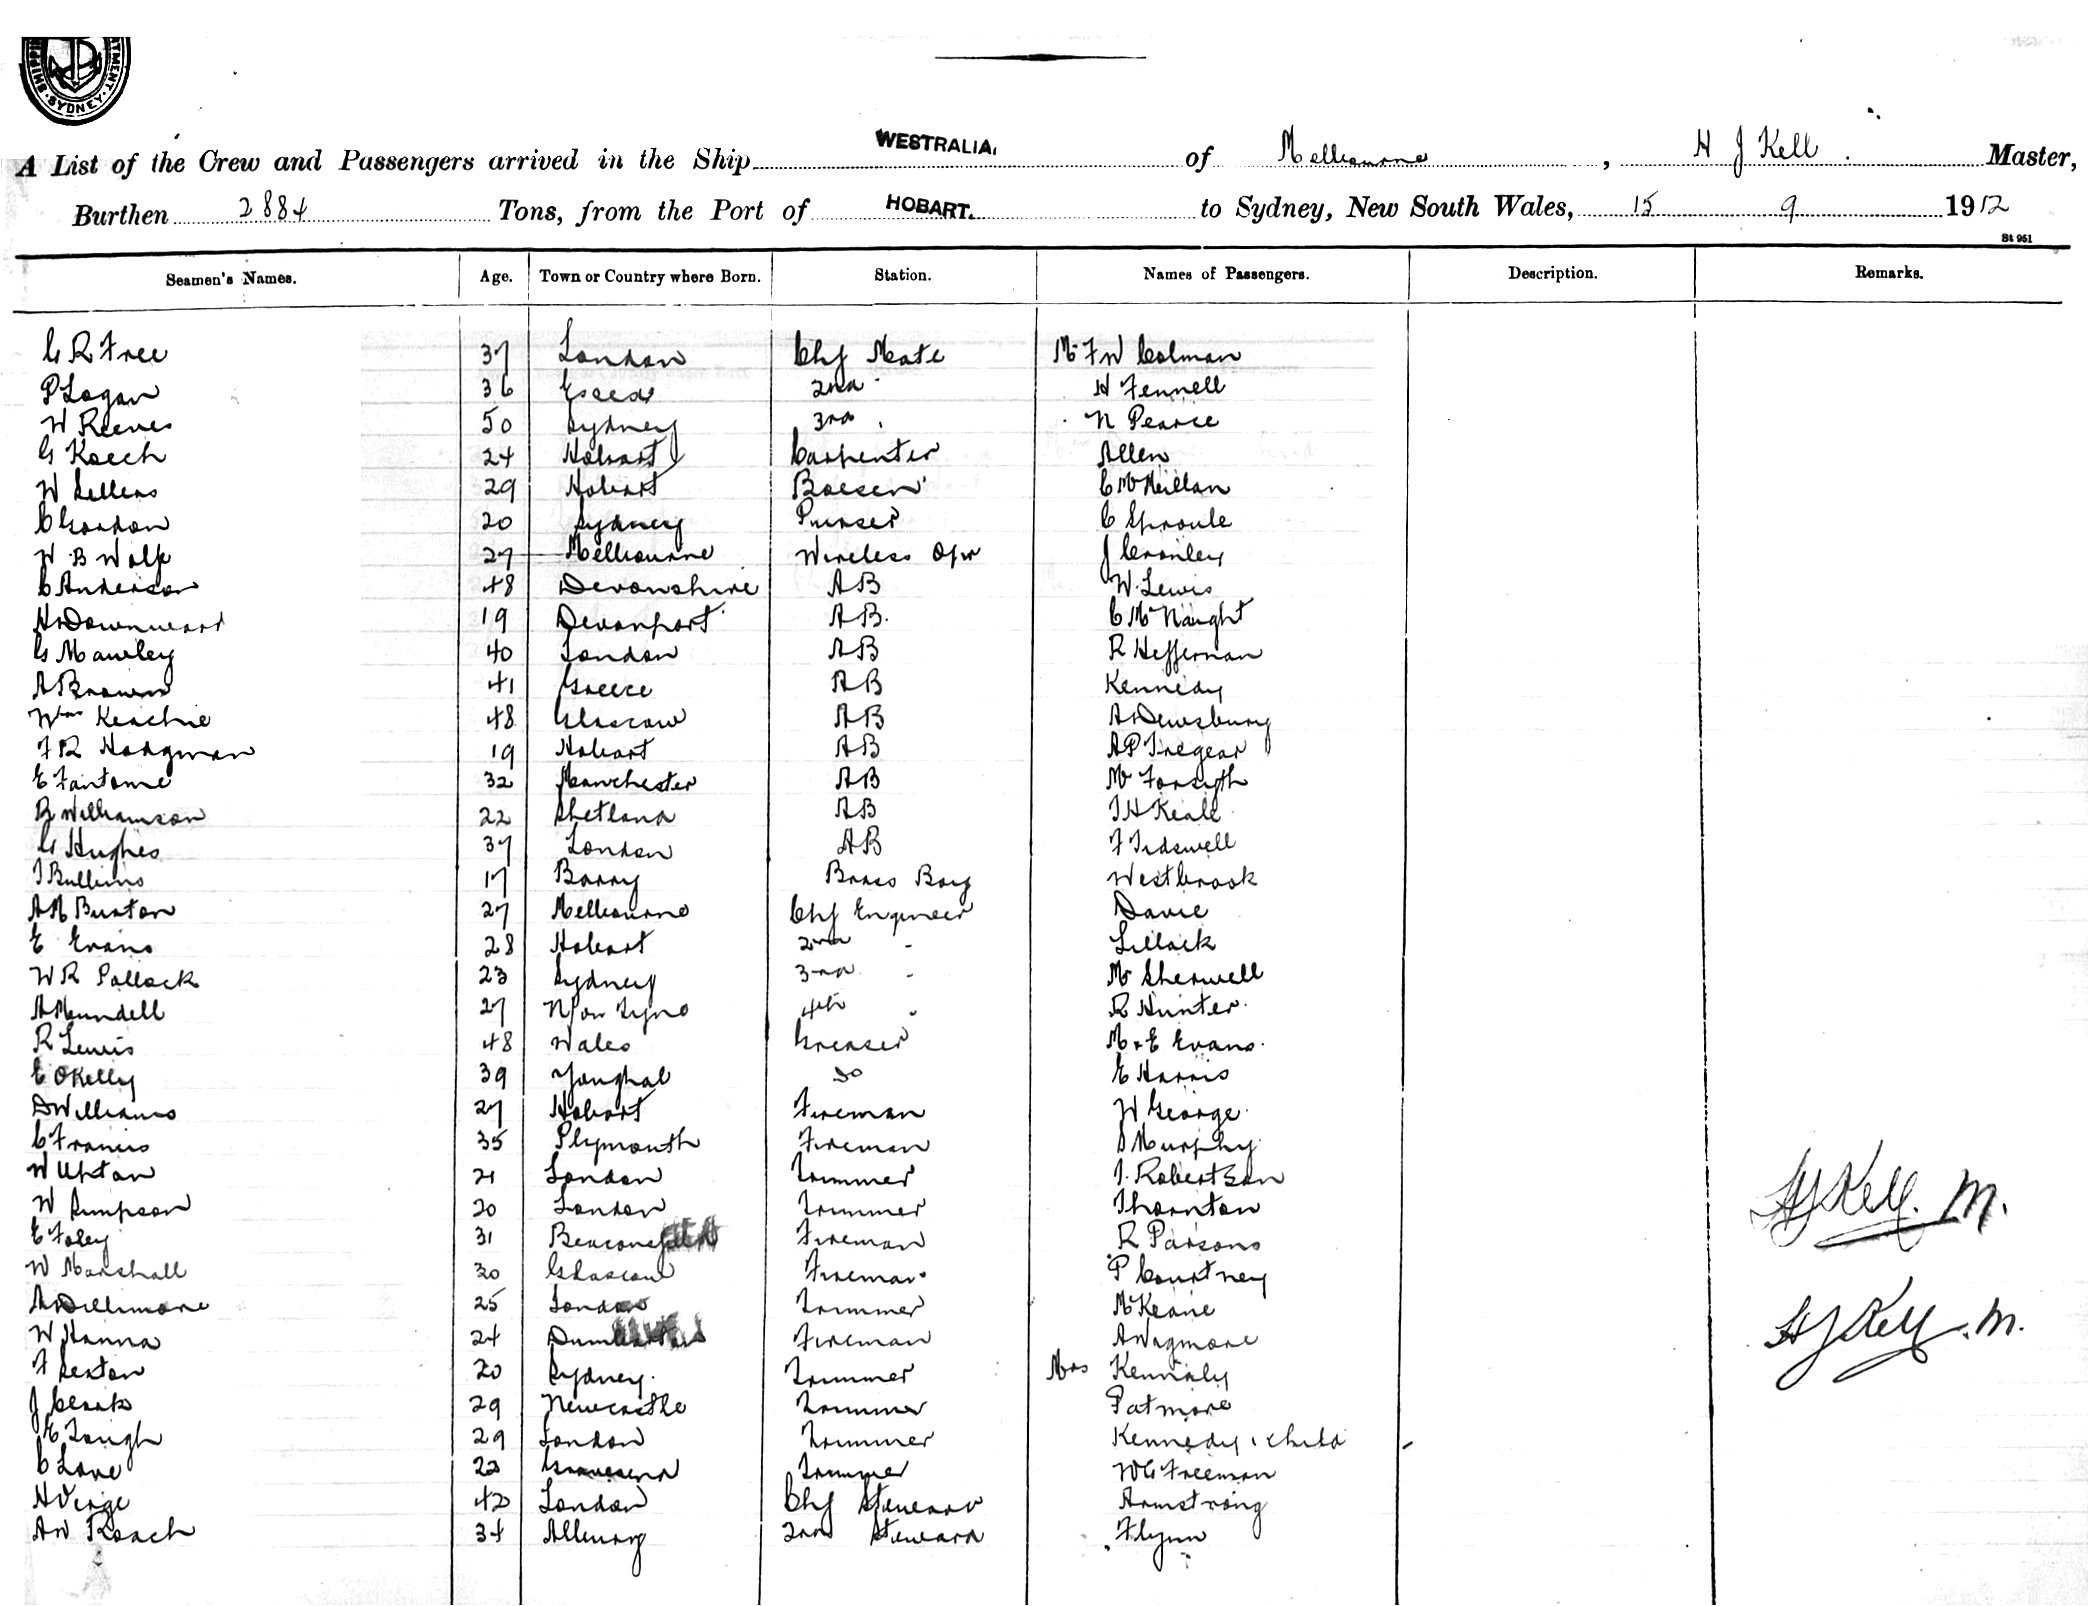 SHIPPING
SYDNEY
A List of the Crew and Passengers arrived in the Ship WESTRALIA. of Melbourne, H J Kell Master,
Burthen 2884 Tons, from the Port of HOBART. to Sydney, New South Wales, 15 9 1912
St 951
Seamen's Names. Age. Town or Country where Born. Station. Names of Passengers. Description. Remarks.
G R Free 37 London Chf Mate Mr F W Colman
P Logan 36 Essex 2nd H Fennell
W Reeves 50 Sydney 3rd N Pearce
G Koech 24 Hobart Carpenter Allen
W Sellers 29 Hobart Boesen C McMillan
C Gordon 20 Sydney Purser C Sproule
W B Wolfe 27 Melbourne Wireless Opr J Cronley
C Anderson 48 Devonshire AB W Lewis
H Downward 19 Devonport AB. C McNaught
G Mawley 40 London AB R Heffernan
A Brown 41 Greece AB Kennedy
Wm Keachie 48 Glascow AB A Dewsbury
F R Hodgman 19 Hobart AB A P Tregear
E Fantome 32 Manchester AB Mr Forsyth
R Williamson 22 Shetland AB T H Keale
G Hughes 37 London AB F Tidswell
T Bullims 17 Barry Brass Boy Westbrook
A M Burton 27 Melbourne Chf Engineer Davie
E Evans 28 Hobart 2nd - Lillack
W R Pollock 23 Sydney 3rd - Mr Sherwell
A Mundell 27 N/on Tyne 4th R Hunter.
R Lewis 48 Wales Greaser M & E Evans.
E O'Kelly 39 Youghal Do E Harris
D Williams 27 Hobart Fireman W George.
C Francis 35 Plymouth Fireman D Murphy
W Upton 21 London Trimmer T. Robertson
W Simpson 20 London Trimmer Thornton
E Foley 31 Beaconsfield Fireman R Parsons
W Marshall 30 Glascow Fireman P Courtney
A Dillimore 25 London Trimmer McKeane
W Hanna 24 Dumbarton Fireman A Wagmore
F Sexton 20 Sydney. Trimmer Mrs Kennealy
J Clark 29 Newcastle Trimmer Patmore
E Tough 29 London Trimmer Kennedy & child
C Love 22 Gravesend Trimmer W G Freeman
H Verge 42 London Chf Steward Armstrong
A W Roach 34 Albury 2nd Steward Flynn
H J Kell. M.
H J Kell. M.